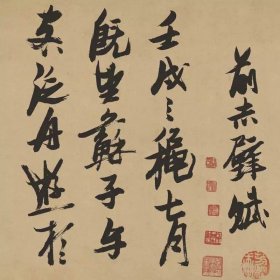 前赤壁賦
壬戌之穐七月
既望蘇子与
客泛舟遊於